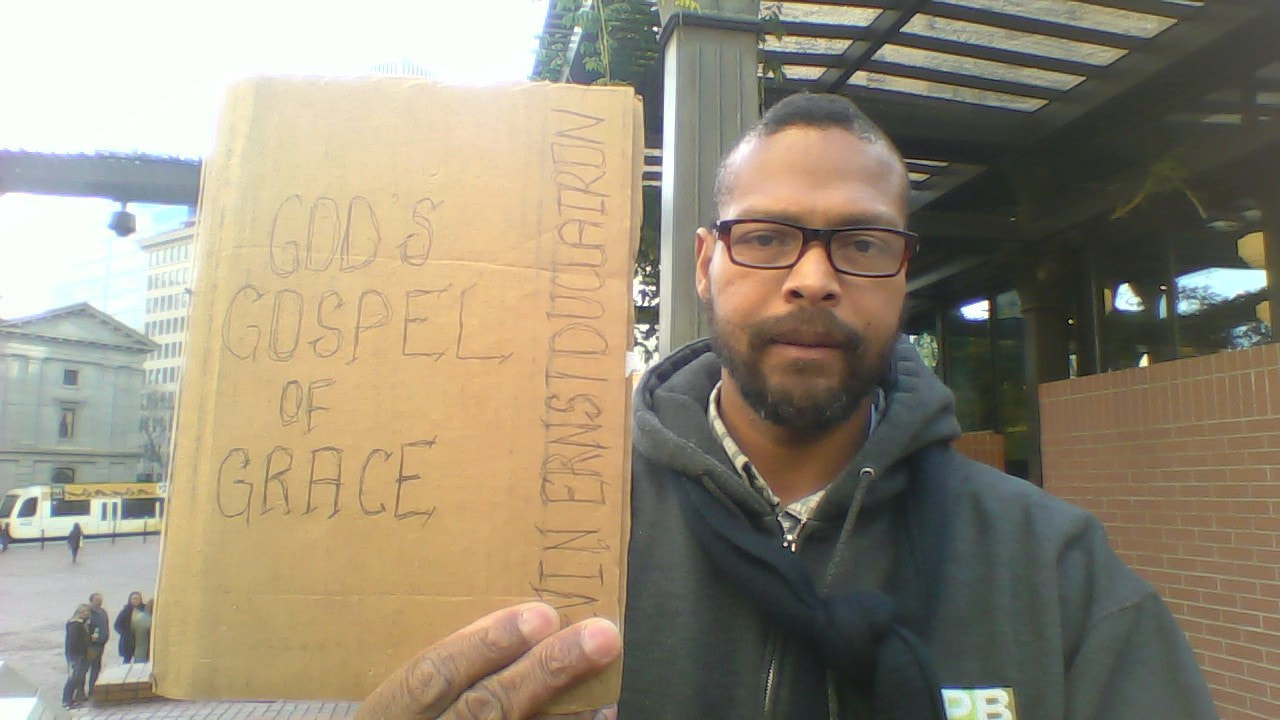 GOD'S
GOSPEL
OF
GRACE
VIN ERNST DUCLAIRON
PB